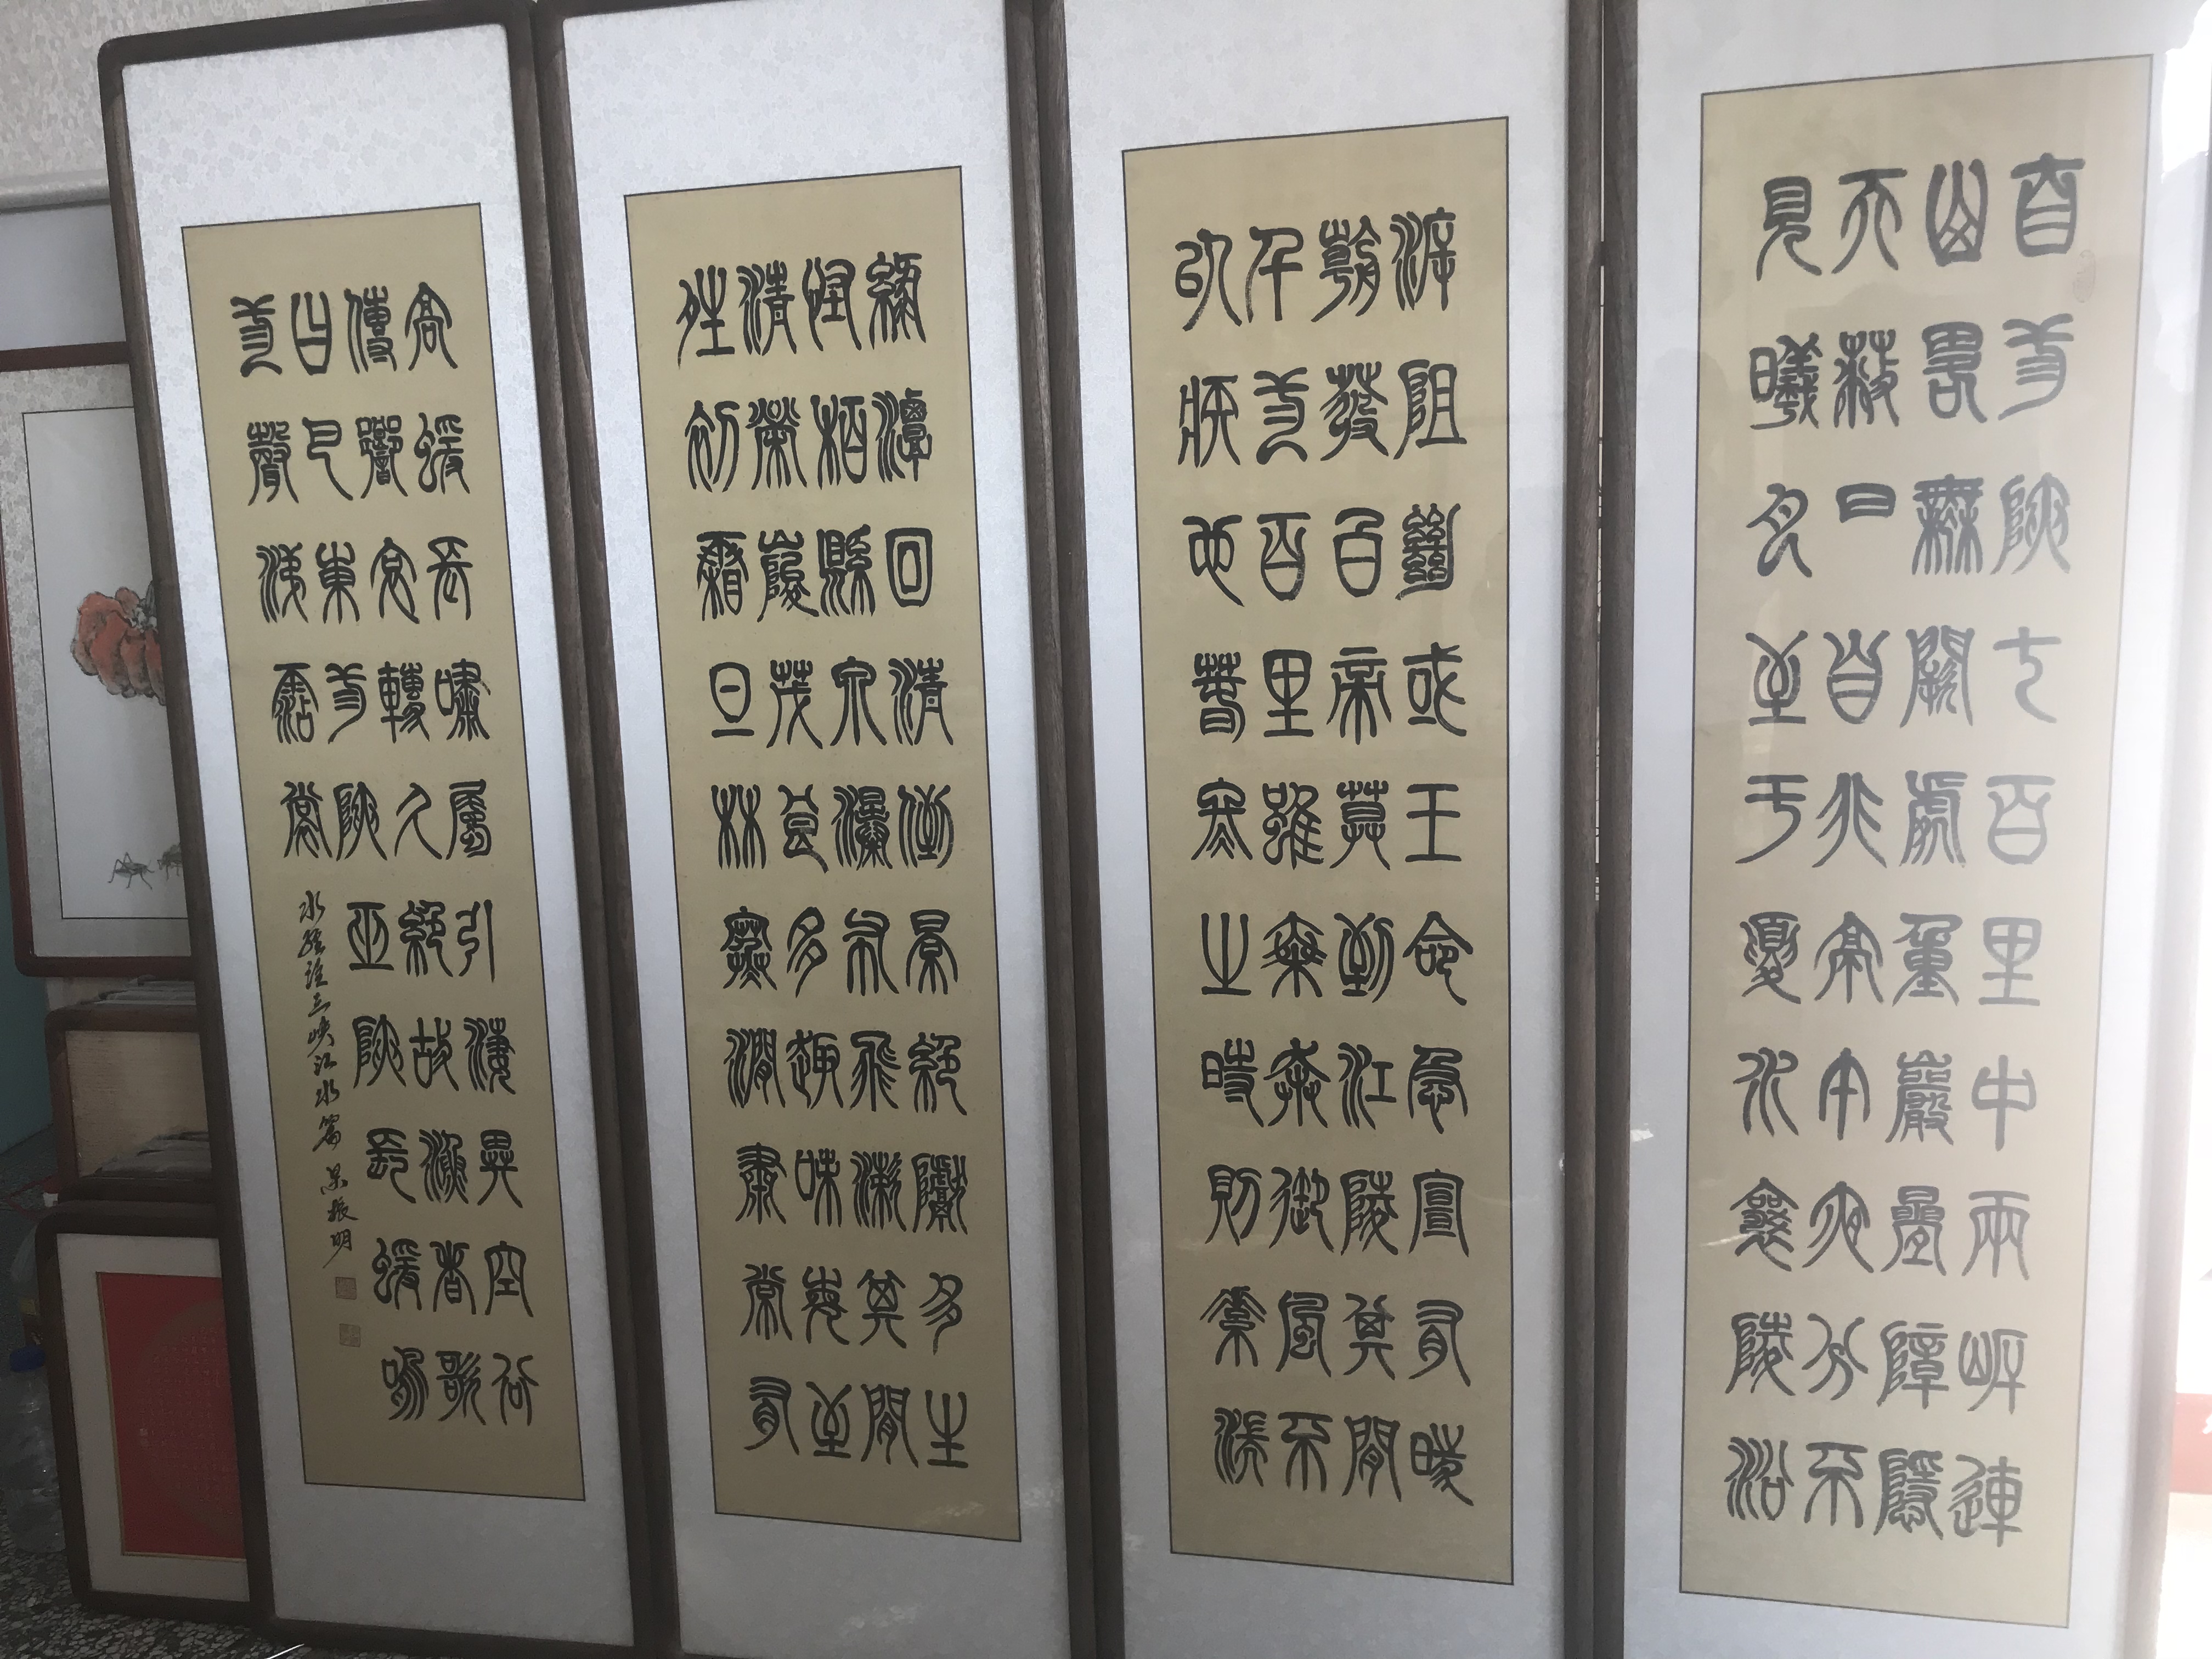 自三陝七百里中兩岸連
山畧無闕處重巖疊障隱
天蔽日自非亭午夜分不
見曦月至于夏水襄陵沿
泝阻絕或王命急宣有時
朝發白帝莫到江陵其間
千二百里雖乘奔御風不
以疾也春冬之時則素湍
綠潭回清倒景絕巘多生
怪柏縣泉瀑布飛漱其間
清榮峻茂良多趣味每至
晴初霜旦林寒澗肅常有
高猨長嘯屬引淒異空谷
傳響哀轉久絕故漁者歌
曰巴東三陝巫陝長猨鳴
三聲淚霑裳
水經注三峡江水篇 吴振明